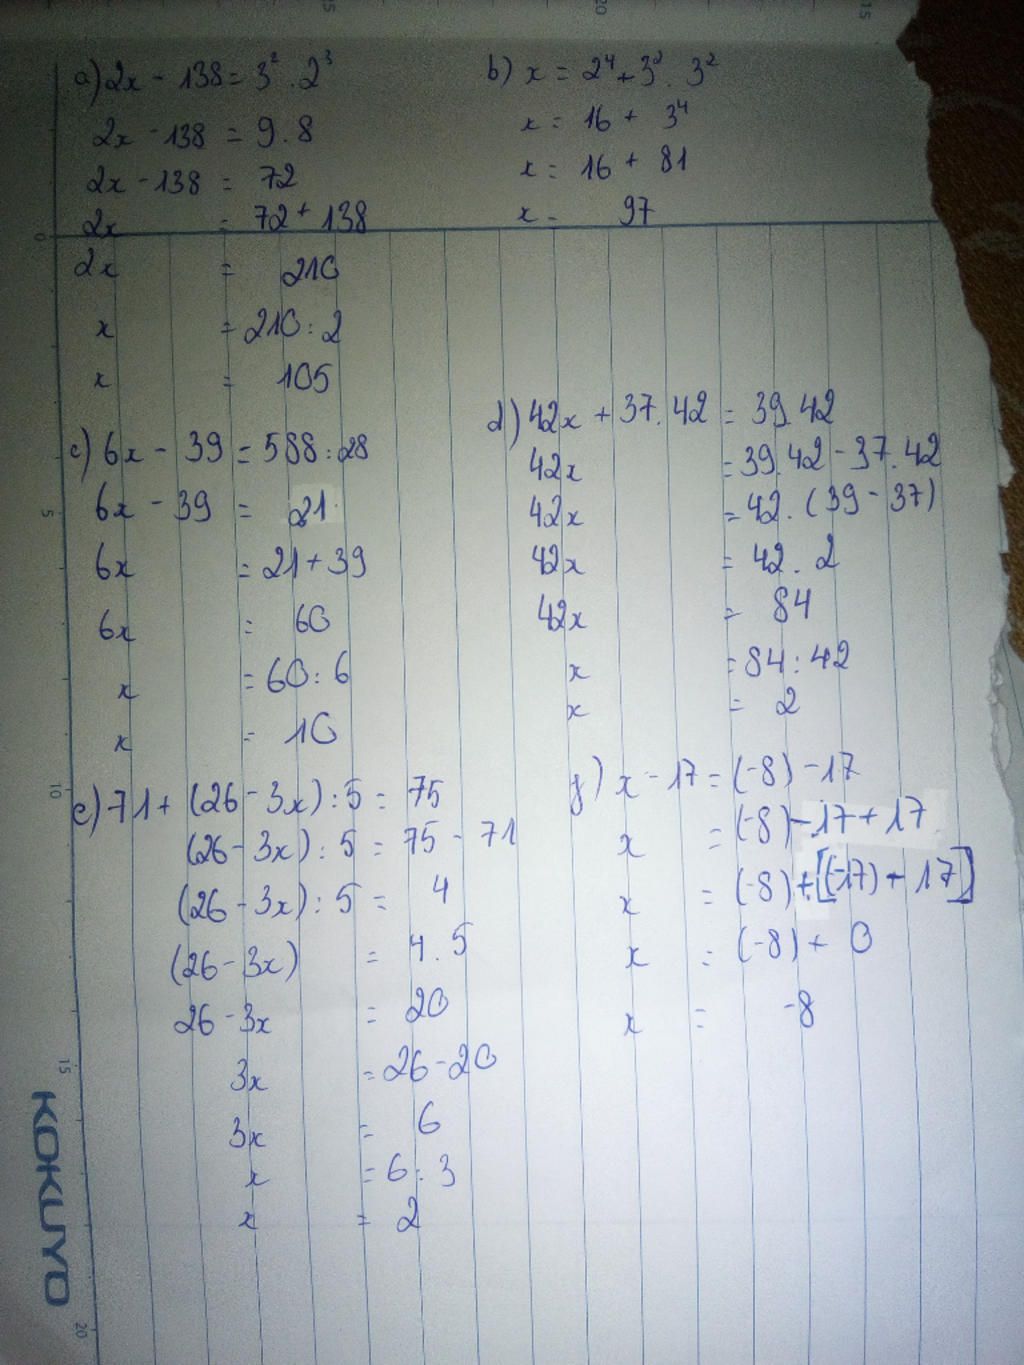 15
20
15
a) 2x - 138 = 3² . 2³
2x - 138 = 9 . 8
2x - 138 = 72
2x = 72 + 138
2x = 210
x = 210 : 2
x = 105
b) x = 2⁴ + 3² . 3²
x = 16 + 3⁴
x = 16 + 81
x = 97
0
c) 6x - 39 = 588 : 28
6x - 39 = 21
6x = 21 + 39
6x = 60
x = 60 : 6
x = 10
5
d) 42x + 37.42 = 39.42
42x = 39.42 - 37.42
42x = 42 . (39 - 37)
42x = 42 . 2
42x = 84
x = 84 : 42
x = 2
10
e) 71 + (26 - 3x) : 5 = 75
(26 - 3x) : 5 = 75 - 71
(26 - 3x) : 5 = 4
(26 - 3x) = 4 . 5
26 - 3x = 20
3x = 26 - 20
3x = 6
x = 6 : 3
x = 2
x - 17 = (-8) - 17
x = (-8) - 17 + 17
x = (-8) + [(-17) + 17]
x = (-8) + 0
x = -8
15
KOKUYO
20